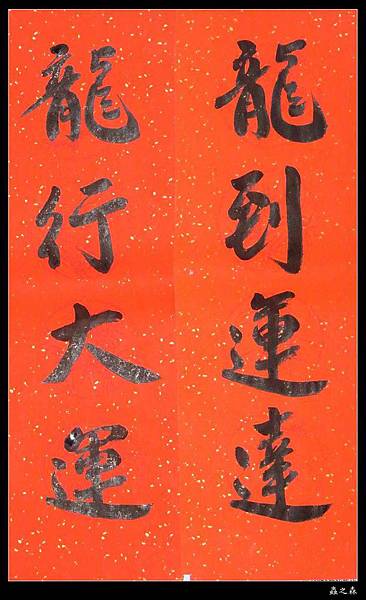 龍到運達
龍行大運
蟲之森